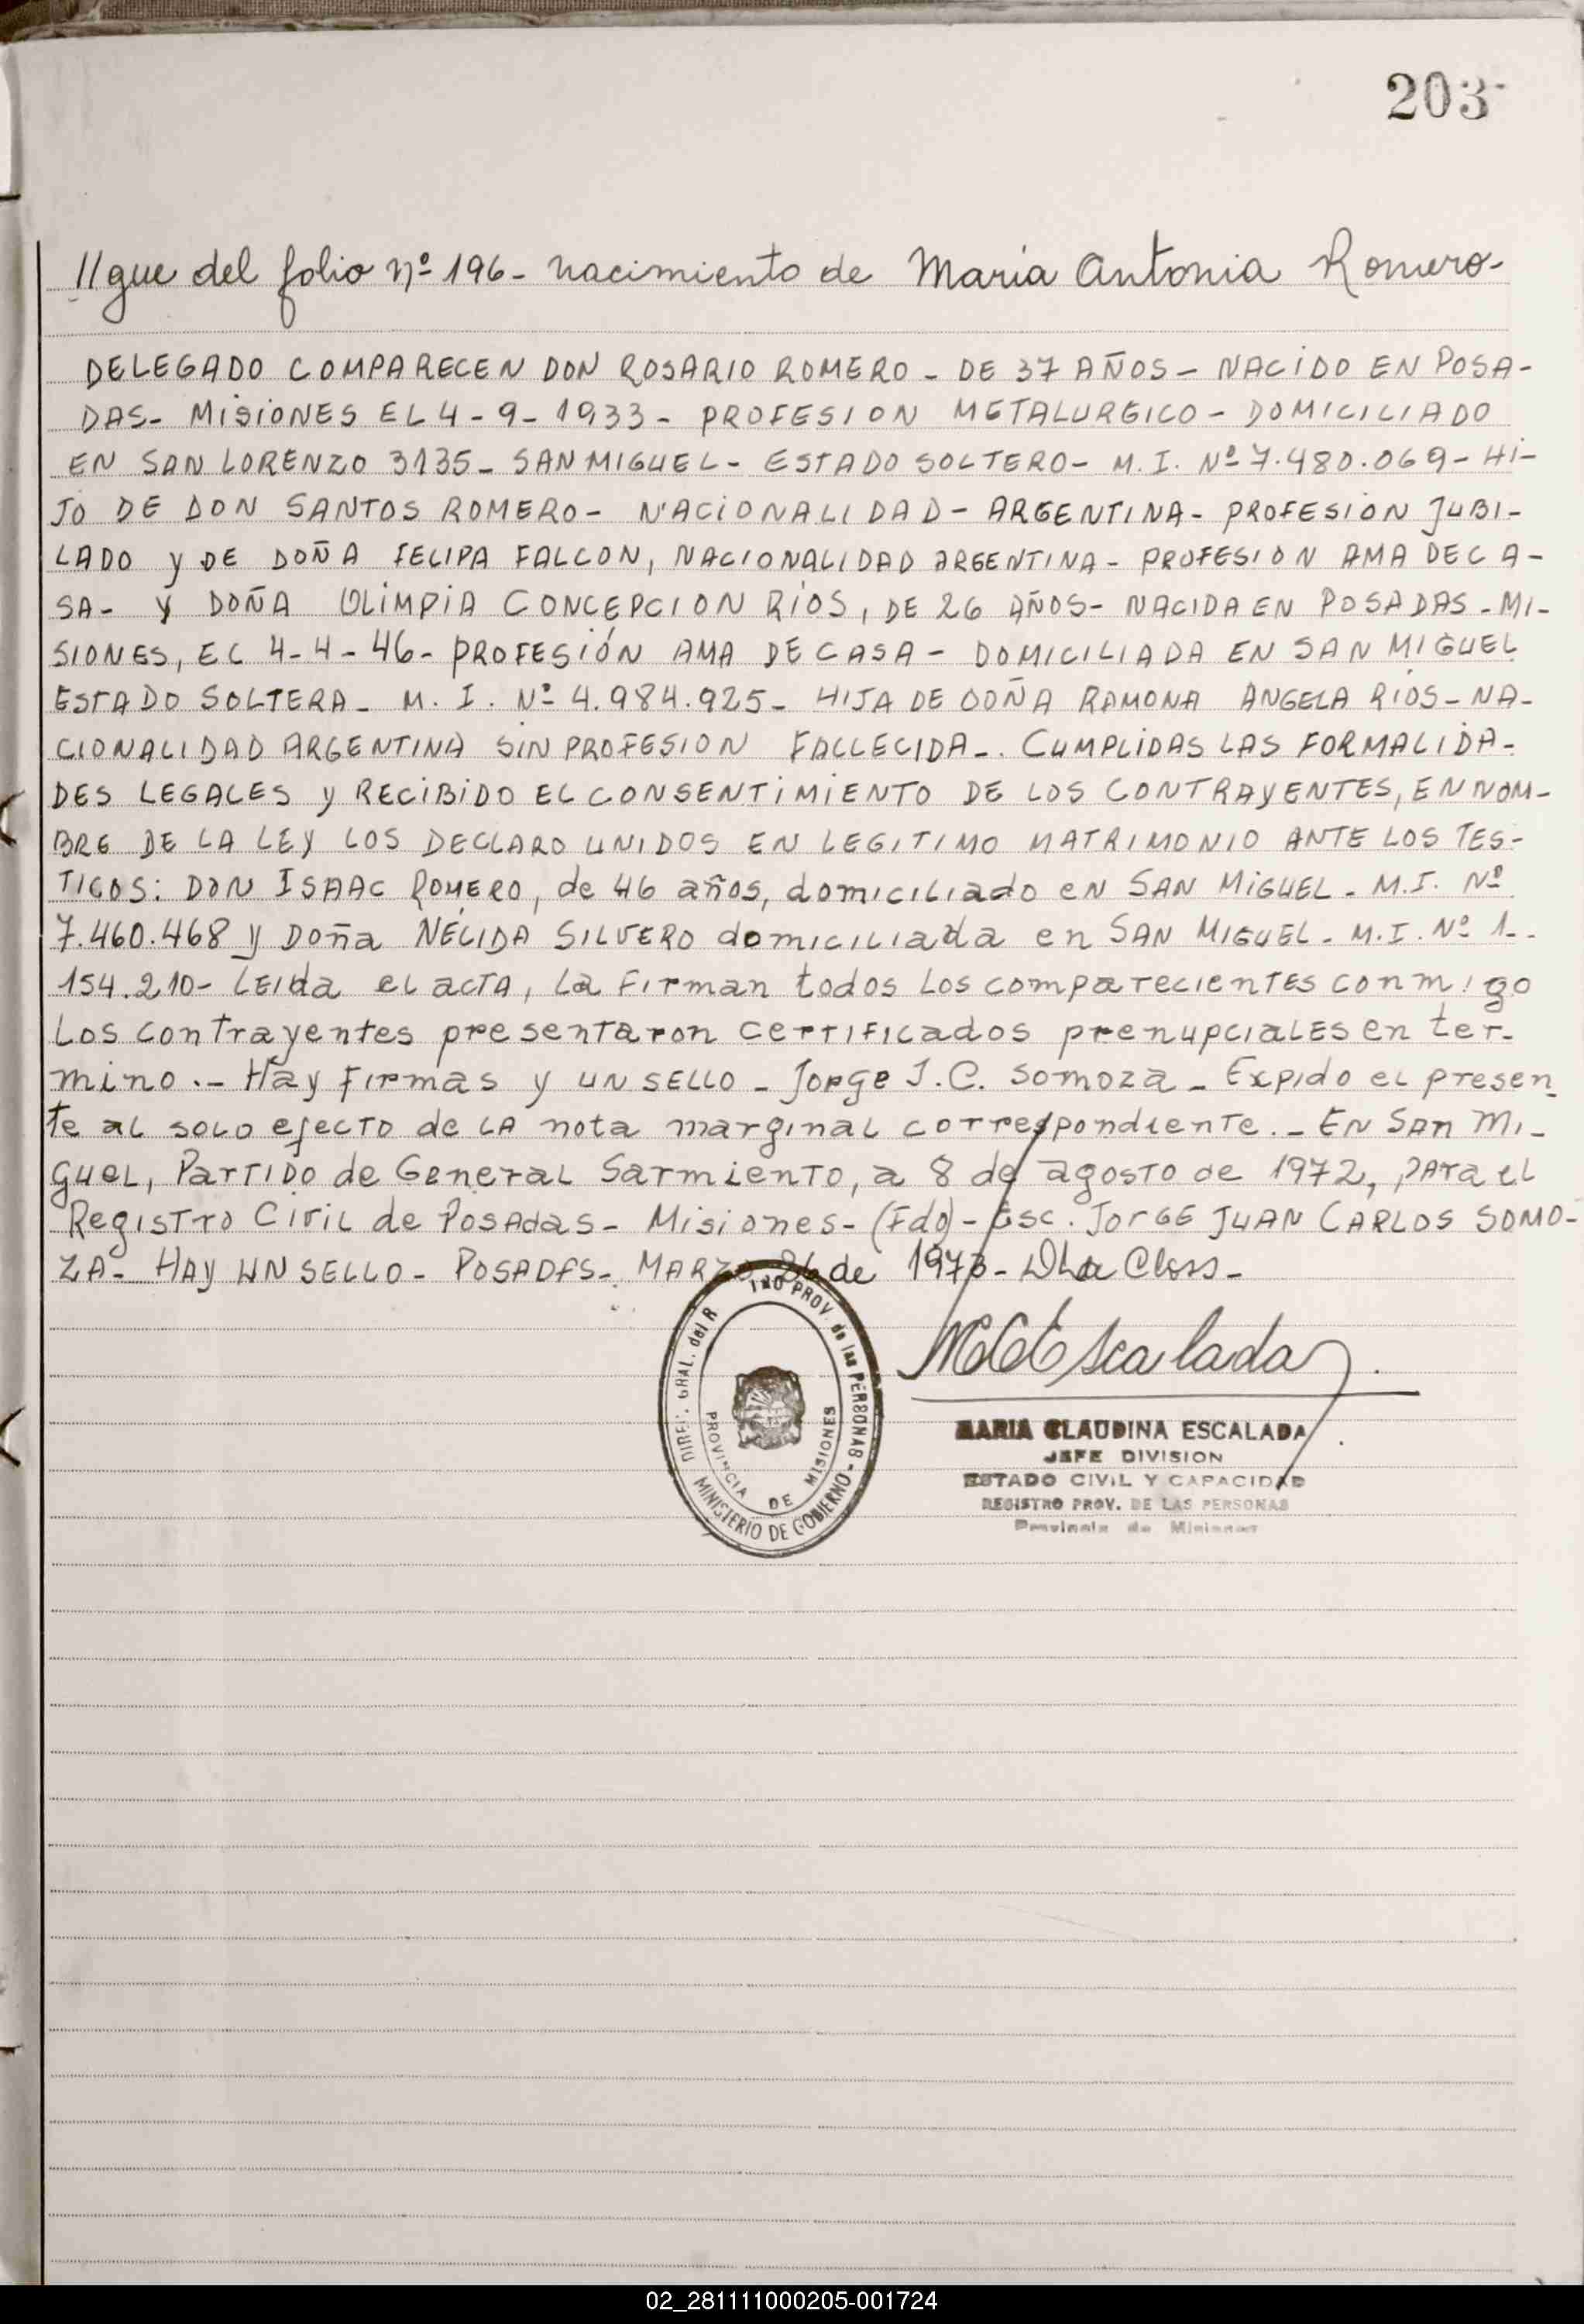 203
//gue del folio nº 196- nacimiento de Maria Antonia Romero-
DELEGADO COMPARECEN DON ROSARIO ROMERO - DE 37 AÑOS - NACIDO EN POSA-
DAS- MISIONES EL 4-9-1933- PROFESION METALURGICO - DOMICILIADO
EN SAN LORENZO 3135- SAN MIGUEL- ESTADO SOLTERO- M. I. Nº 7.480.069- HI-
JO DE DON SANTOS ROMERO- NACIONALIDAD - ARGENTINA- PROFESION JUBI-
LADO y DE DOÑA FELIPA FALCON, NACIONALIDAD ARGENTINA- PROFESION AMA DE CA-
SA- Y DOÑA OLIMPIA CONCEPCION RIOS, DE 26 AÑOS- NACIDA EN POSADAS - MI-
SIONES, EL 4-4-46- PROFESIÓN AMA DE CASA - DOMICILIADA EN SAN MIGUEL
ESTADO SOLTERA- M. I. Nº 4.984.925- HIJA DE DOÑA RAMONA ANGELA RIOS- NA-
CIONALIDAD ARGENTINA SIN PROFESION FALLECIDA-. CUMPLIDAS LAS FORMALIDA-
DES LEGALES y RECIBIDO EL CONSENTIMIENTO DE LOS CONTRAYENTES, EN NOM-
BRE DE LA LEY LOS DECLARO UNIDOS EN LEGITIMO MATRIMONIO ANTE LOS TES-
TIGOS: DON ISAAC ROMERO, de 46 años, domiciliado en SAN MIGUEL- M.I. Nº
7.460.468 y Doña NÉLIDA SILVERO domiciliada en SAN MIGUEL- M.I. Nº 1-.
154.210- LEIda el ACTA, La Firman todos Los comparecientes conmigo
Los contrayentes presentaron certificados prenupciales en ter-
mino.- Hay Firmas y un SELLO - Jorge J. C. Somoza - Expido el presen-
te al solo efecto de LA nota marginal correspondiente.- EN San Mi-
guel, Partido de General Sarmiento, a 8 de agosto de 1972, para el
Registro Civil de Posadas- Misiones- (Fdo)- Esc. JORGE JUAN CARLOS SOMO-
ZA- HAY UN SELLO- POSADAS- MARZO 26 de 1973-
MCEscalada
DIREC. GRAL. del R PROV. de las PERSONAS - MINISTERIO DE GOBIERNO
PROVINCIA DE MISIONES
MARIA CLAUDINA ESCALADA
JEFE DIVISION
ESTADO CIVIL Y CAPACIDAD
REGISTRO PROV. DE LAS PERSONAS
Provincia de Misiones
02_281111000205-001724